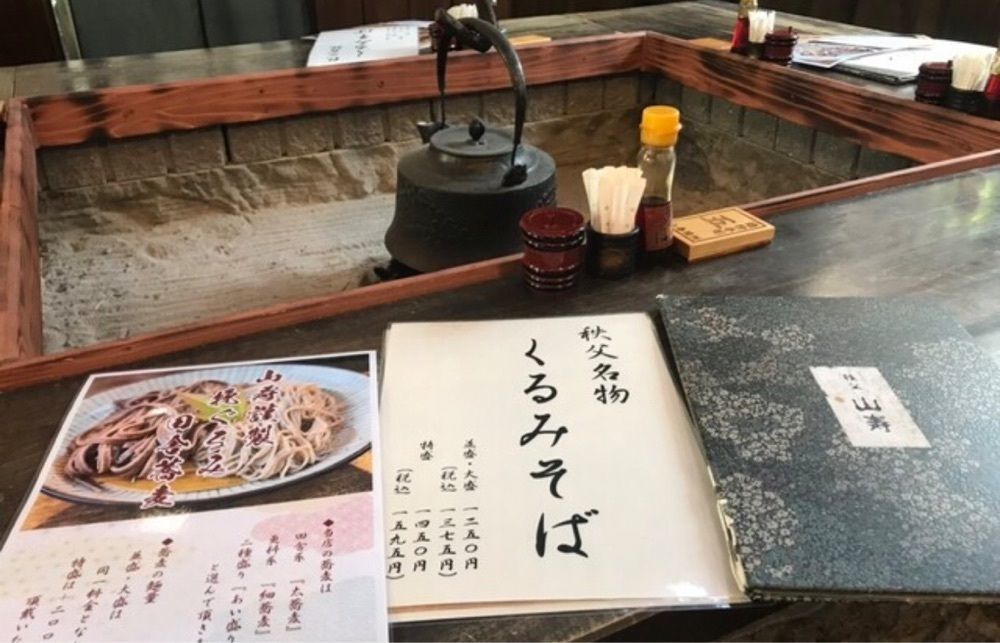 秩父名物
くるみそば
並盛・大盛 一二五〇円
(税込) 一三七五円)
特盛 一四五〇円
(税込) 一五九五円)
秩父 山寿
山寿謹製
田舎蕎麦
◆当店の蕎麦は
田舎系 『太蕎麦』
更科系 『細蕎麦』
三種盛り 『あい盛り
と選んで頂き
◆蕎麦の麺量
並盛・大盛は
同一料金とな
特盛は、二〇〇
頂戴いた